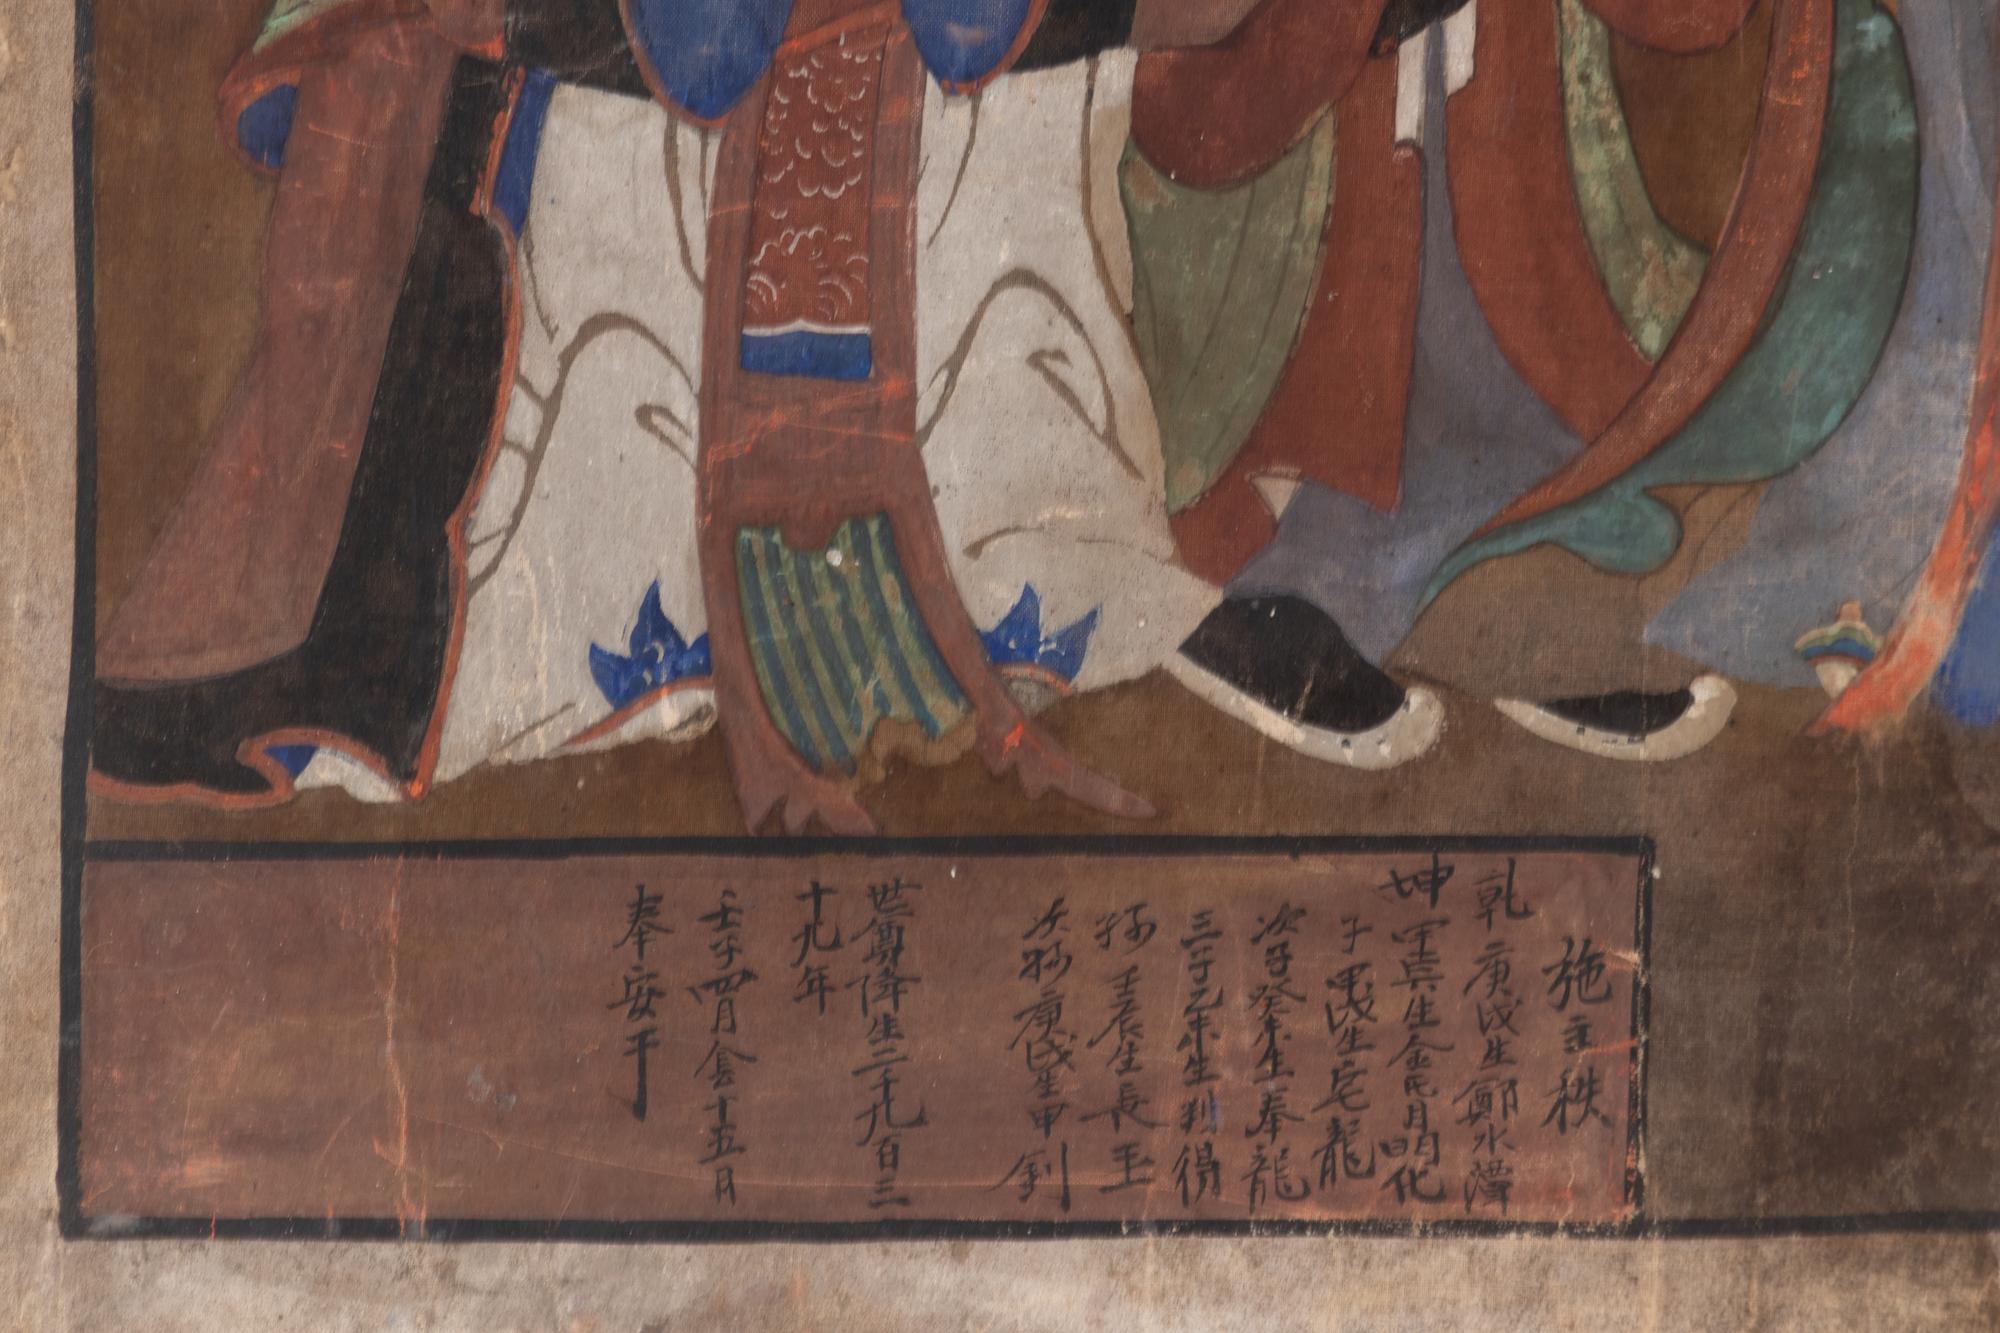 施主秩
乾 庚戌生鄭水潭
坤 甲寅生金氏月明化
子 甲戌生宅龍
次子癸未生奉龍
三子乙未生判得
孫 壬辰生長玉
次孫庚戌生甲釗
世尊降生二千九百三
十九年
壬子四月念十五月
奉安于